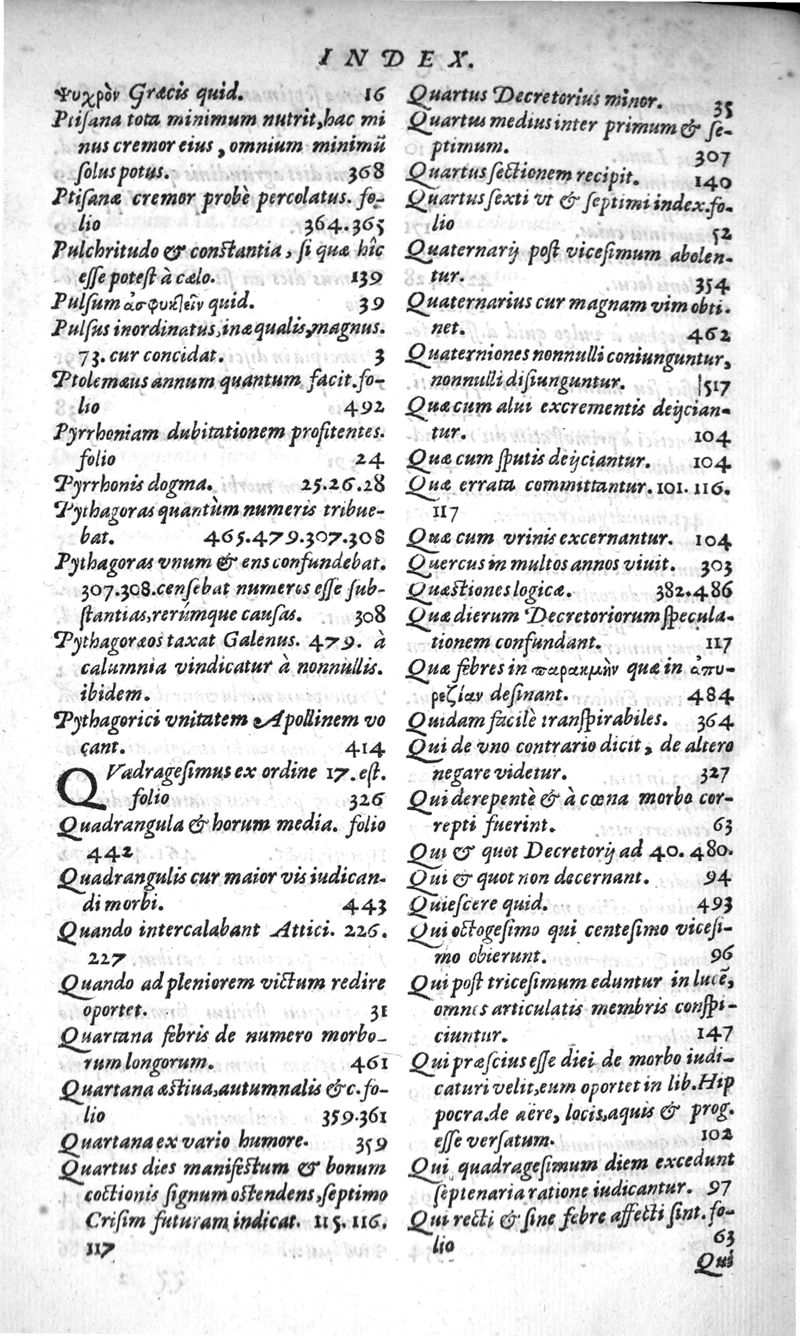 INDEX.
Ψυχρὸν Græcis quid. 16
Ptiſana tota minimum nutrit, hac mi
nus cremor eius, omnium minimũ
ſolus potus. 368
Ptiſanæ cremor probè percolatus. fo-
lio 364.365
Pulchritudo & conſtantia, ſi quæ hîc
eſſe poteſt à cælo. 139
Pulſum ἀσφυκλεῖν quid. 39
Pulſus inordinatus, inæqualis, magnus.
73. cur concidat. 3
Ptolemæus annum quantum facit. fo-
lio 492
Pyrrhoniam dubitationem profitentes.
folio 24
Pyrrhonis dogma. 25.26.28
Pythagoras quantùm numeris tribue-
bat. 465.479.307.308
Pythagoras vnum & ens confundebat.
307.308. cenſebat numeros eſſe ſub-
ſtantias, rerúmque cauſas. 308
Pythagoræos taxat Galenus. 479. à
calumnia vindicatur à nonnullis.
ibidem.
Pythagorici vnitatem Apollinem vo
cant. 414
QVadrageſimus ex ordine 17. eſt.
folio 326
Quadrangula & horum media. folio
442
Quadrangulis cur maior vis iudican-
di morbi. 443
Quando intercalabant Attici. 226.
227
Quando ad pleniorem victum redire
oportet. 31
Quartana febris de numero morbo-
rum longorum. 461
Quartana æſtiua, autumnalis &c. fo-
lio 359.361
Quartana ex vario humore. 359
Quartus dies manifeſtum & bonum
coctionis ſignum oſtendens, ſeptimo
Criſim futuram indicat. 115. 116.
117
Quartus Decretorius minor. 35
Quartus medius inter primum & ſe-
ptimum. 307
Quartus ſectionem recipit. 140
Quartus ſexti vt & ſeptimi index. fo-
lio 52
Quaternarij poſt viceſimum abolen-
tur. 354
Quaternarius cur magnam vim obti-
net. 462
Quaterniones nonnulli coniunguntur,
nonnulli diſiunguntur. 517
Quæ cum alui excrementis deijcian-
tur. 104
Quæ cum ſputis deijciantur. 104
Quæ errata committantur. 101. 116.
117
Quæ cum vrinis excernantur. 104
Quercus in multos annos viuit. 303
Quæſtiones logicæ. 382.486
Quæ dierum Decretoriorum ſpecula-
tionem confundant. 117
Quæ febres in παρακμὴν quæ in ἀπυ-
ρεξίαν deſinant. 484
Quidam facilè tranſpirabiles. 364
Qui de vno contrario dicit, de altero
negare videtur. 327
Qui derepentè & à cœna morbo cor-
repti fuerint. 63
Qui & quot Decretorij ad 40. 480.
Qui & quot non decernant. 94
Quieſcere quid. 493
Qui octogeſimo qui centeſimo viceſi-
mo obierunt. 96
Qui poſt triceſimum eduntur in lucẽ,
omnes articulatis membris conſpi-
ciuntur. 147
Qui præſcius eſſe diei de morbo iudi-
caturi velit, eum oportet in lib. Hip
pocra. de aëre, locis, aquis & prog.
eſſe verſatum. 102
Qui quadrageſimum diem excedunt
ſeptenaria ratione iudicantur. 97
Qui recti & ſine febre affecti ſint. fo-
lio 63
Qui